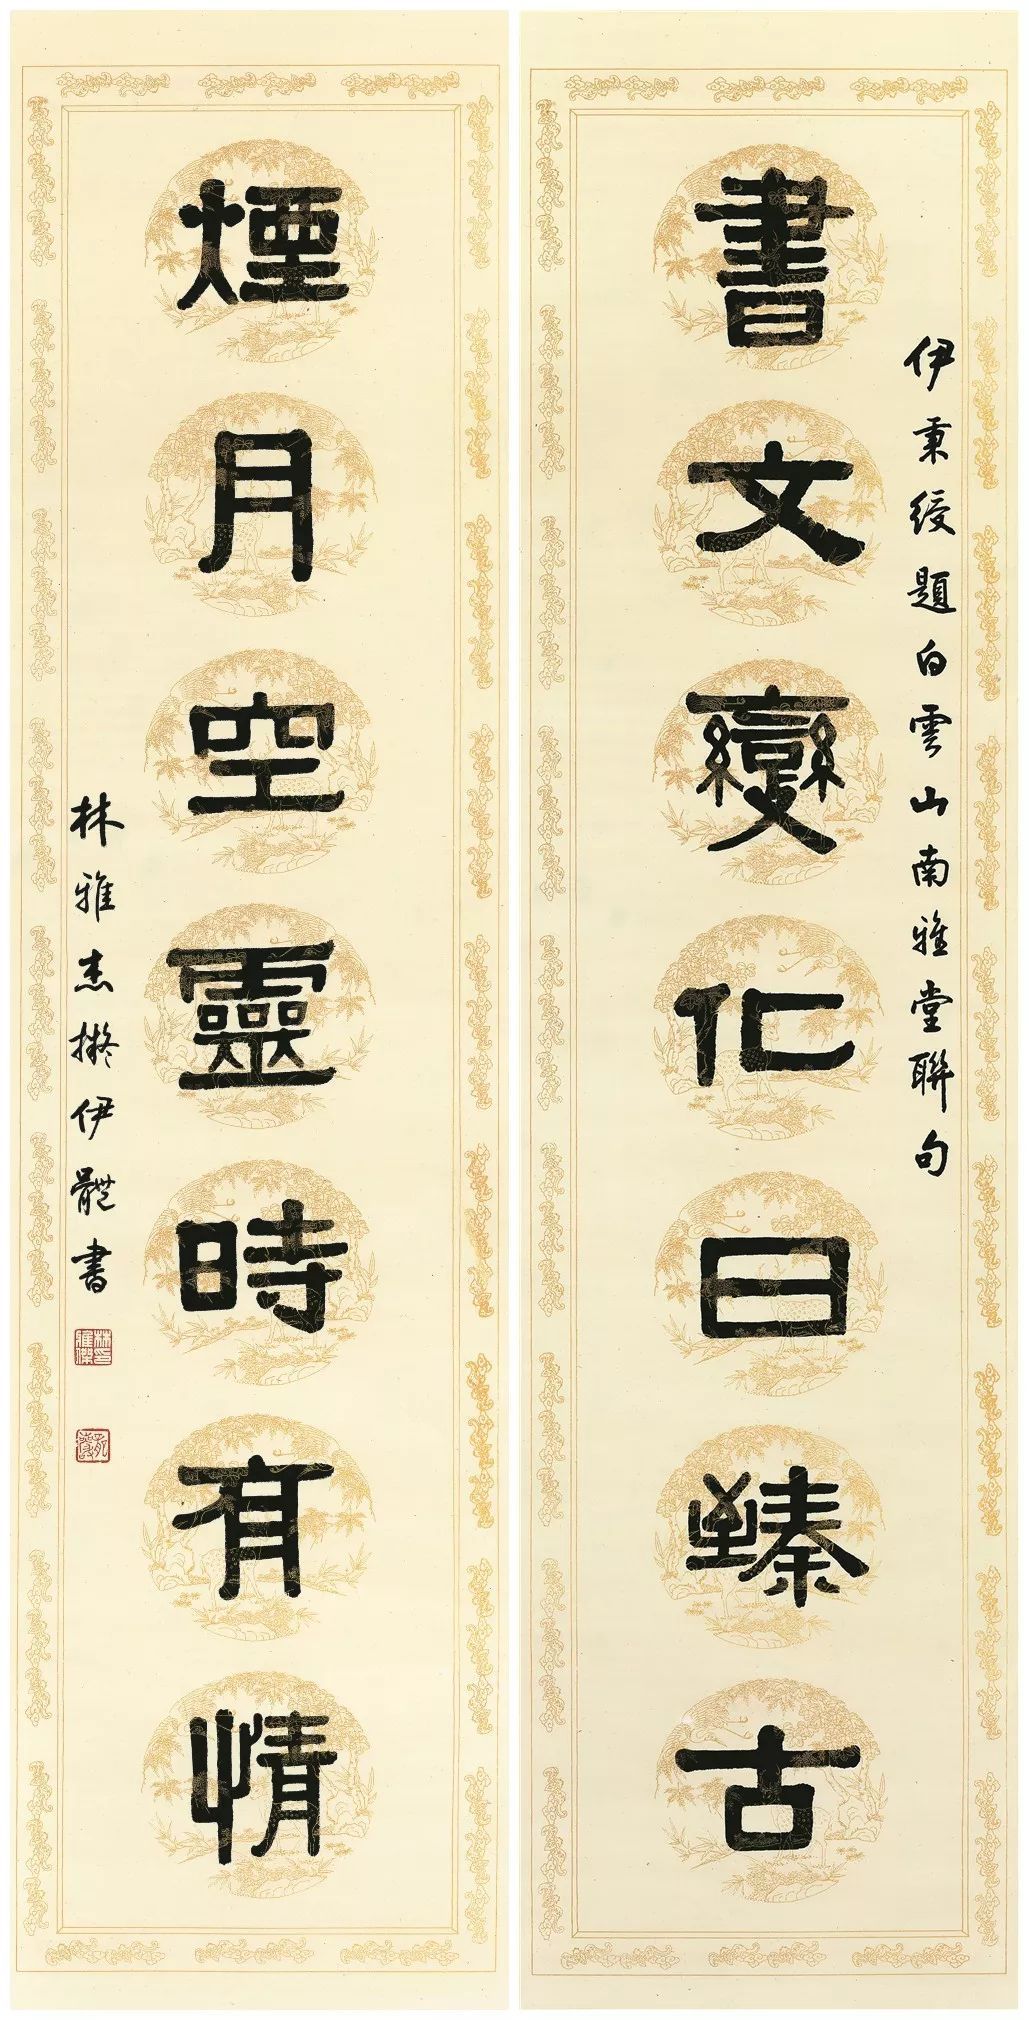 伊秉綬題白雲山南雅堂聯句
書文變化日臻古
煙月空靈時有情
林雅杰擬伊體書
林印
雅傑